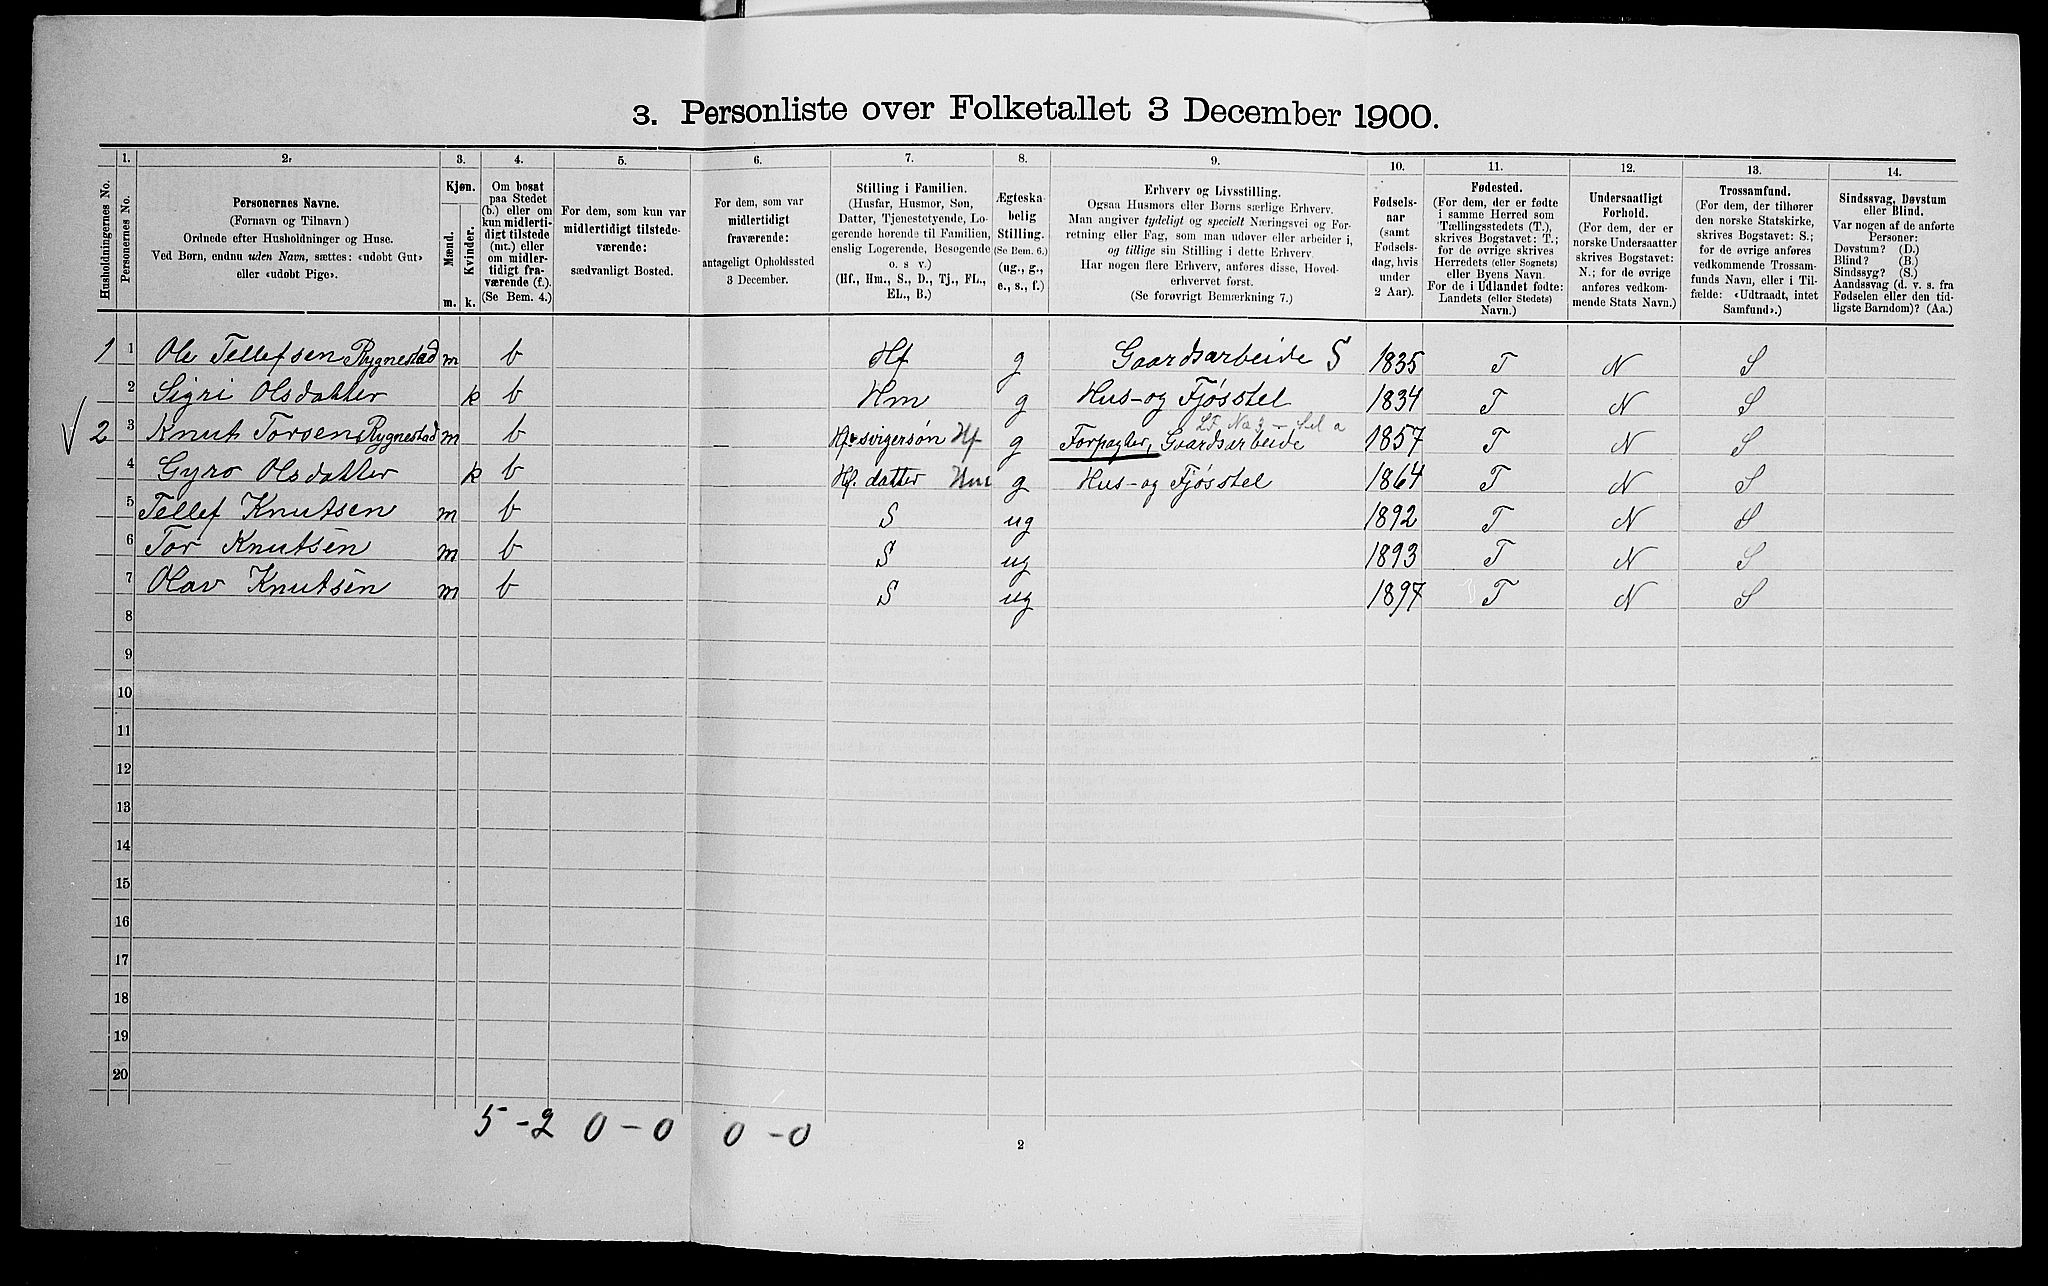 3. Personliste over Folketallet 3 December 1900.
1. 2. 3. 4. 5. 6. 7. 8. 9. 10. 11. 12. 13. 14.
Husholdningernes No.
Personernes No.
Personernes Navne.
(Fornavn og Tilnavn)
Ordnede efter Husholdninger og Huse.
Ved Børn, endnu uden Navn, sættes: «udøbt Gut»
eller «udøbt Pige».
Kjøn.
Mænd.
Kvinder.
m. k.
Om bosat
paa Stedet
(b.) eller om
kun midlerti-
digt tilstede
(mt.) eller
om midler-
tidigt fra-
værende (f.).
(Se Bem. 4.)
For dem, som kun var
midlertidigt tilstede-
værende:
sædvanligt Bosted.
For dem, som var
midlertidigt
fraværende:
antageligt Opholdssted
3 December.
Stilling i Familien.
(Husfar, Husmor, Søn,
Datter, Tjenestetyende, Lo-
gerende hørende til Familien,
enslig Logerende, Besøgende
o. s v.)
(Hf., Hm., S., D., Tj., FL.,
EL., B.)
Ægteska-
belig
Stilling.
(Se Bem. 6.)
(ug., g.,
e., s., f.)
Erhverv og Livsstilling.
Ogsaa Husmors eller Børns særlige Erhverv.
Man angiver tydeligt og specielt Næringsvei og For-
retning eller Fag, som man udøver eller arbeider i,
og tillige sin Stilling i dette Erhverv.
Har nogen flere Erhverv, anføres disse, Hoved-
erhvervet først.
(Se forøvrigt Bemærkning 7.)
Fødsels-
aar
(samt
Fødsels-
dag, hvis
under
2 Aar).
Fødested.
(For dem, der er fødte
i samme Herred som
Tællingsstedets (T.),
skrives Bogstavet: T.;
for de øvrige skrives
Herredets (eller Sognets)
eller Byens Navn.
For de i Udlandet fødte:
Landets (eller Stedets)
Navn.)
Undersaatligt
Forhold.
(For dem, der er
norske Undersaatter
skrives Bogstavet:
N.; for de øvrige
anføres vedkom-
mende Stats Navn.)
Trossamfund.
(For dem, der tilhører
den norske Statskirke,
skrives Bogstavet: S.;
for de øvrige anføres
vedkommende Trossam-
funds Navn, eller i Til-
fælde: «Udtraadt, intet
Samfund».)
Sindssvag, Døvstum
eller Blind.
Var nogen af de anførte
Personer:
Døvstum? (D.)
Blind? (B.)
Sindssyg? (S.)
Aandssvag (d. v. s. fra
Fødselen eller den tid-
ligste Barndom)? (Aa.)
1 1 Ole Tellefsen Rygnestad m b Hf g Gaardsarbeide S 1835 T N S
2 Sigri Olsdatter k b Hm g Hus- og Fjøsstel 1834 T N S
2 3 Knut Torsen Rygnestad m b Hf svigersøn Hf g Forpagter, Gaardsarbeide 1857 T N S
4 Gyro Olsdatter k b Hf. datter Hm g Hus- og Fjøsstel 1864 T N S
5 Tellef Knutsen m b S ug 1892 T N S
6 Tor Knutsen m b S ug 1893 T N S
7 Olav Knutsen m b S ug 1897 T N S
8
9
10
11
12
13
14
15
16
17
18
19
20
5-2 0-0 0-0
2